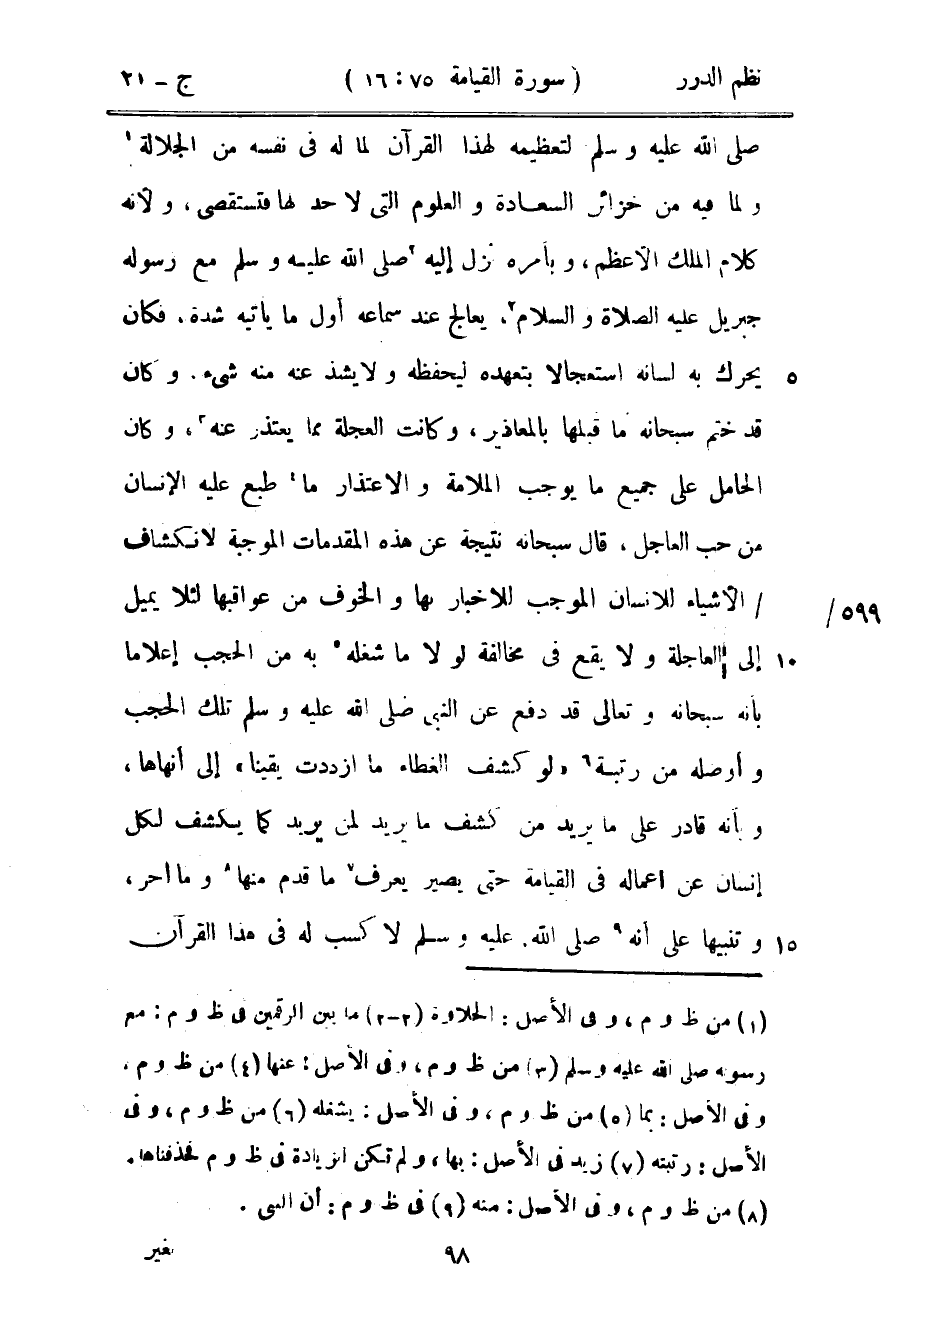 نظم الدرر ( سورة القيامة ٧٥ : ١٦ ) ج ـ ٢١
صلى الله عليه و سلم لتعظيمه لهذا القرآن لما له فى نفسه من الجلالة١
و لما فيه من خزائن السعادة و العلوم التى لا حد لها فتستقصى، و لأنه
كلام الملك الأعظم، و بأمره نزل إليه ٢صلى الله عليه و سلم مع رسوله
جبريل عليه الصلاة و السلام٢، يعالج عند سماعه أول ما يأتيه شدة، فكان
٥ يحرك به لسانه استعجالا بتعهده ليحفظه و لا يشذ عنه منه شىء. و كان
قد ختم سبحانه ما قبلها بالمعاذير، و كانت العجلة مما يعتذر عنه٣، و كان
الحامل على جميع ما يوجب الملامة و الاعتذار ما٤ طبع عليه الإنسان
من حب العاجل، قال سبحانه نتيجة عن هذه المقدمات الموجبة لانكشاف
٥٩٩/ / الأشياء للانسان الموجب للاخبار بها و الخوف من عواقبها لئلا يميل
١٠ إلى العاجلة و لا يقع فى مخالفة لو لا ما شغله٥ به من الحجب إعلاما
بأنه سبحانه و تعالى قد دفع عن النبى صلى الله عليه و سلم تلك الحجب
و أوصله من رتبة٦ «لو كشف الغطاء ما ازددت يقينا» إلى أنهاها،
و أنه قادر على ما يريد من كشف ما يريد لمن يريد كما يكشف لكل
إنسان عن اعماله فى القيامة حتى يصير يعرف٧ ما قدم منها٨ و ما أخر،
١٥ و تنبيها على أنه٩ صلى الله عليه و سلم لا كسب له فى هذا القرآن
(١) من ظ و م، و فى الأصل : الحلاوة (٢-٢) ما بين الرقمين فى ظ و م : مع
رسوله صلى الله عليه و سلم (٣) من ظ و م، و فى الأصل : عنها (٤) من ظ و م،
و فى الأصل : بما (٥) من ظ و م، و فى الأصل : يشغله (٦) من ظ و م، و فى
الأصل : رتبته (٧) زيد فى الأصل : بها، و لم تكن الزيادة فى ظ و م فحذفناها.
(٨) من ظ و م، و فى الأصل : منه (٩) فى ظ و م : أن النبى.
٩٨ بغير